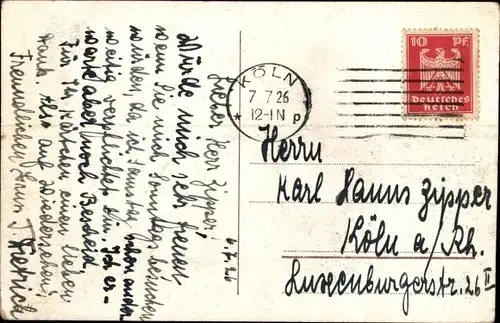 6.7.26
Lieber Herr Zipper!
Würde mich sehr freuen
wenn Sie mich Sonntag besuchen
würden, da ich Samstag schon ander-
weitig verpflichtet bin. Ich er-
warte aber noch Bescheid.
Für Ihr Kärtchen einen lieben
Dank. Also auf Wiedersehen!
Freundlichen Gruss
KÖLN
7.7.26
12-1N
* p
10 Pf
Deutsches
Reich
Herrn
Karl Hanns Zipper
Köln a/Rh.
Luxemburgerstr. 26 II